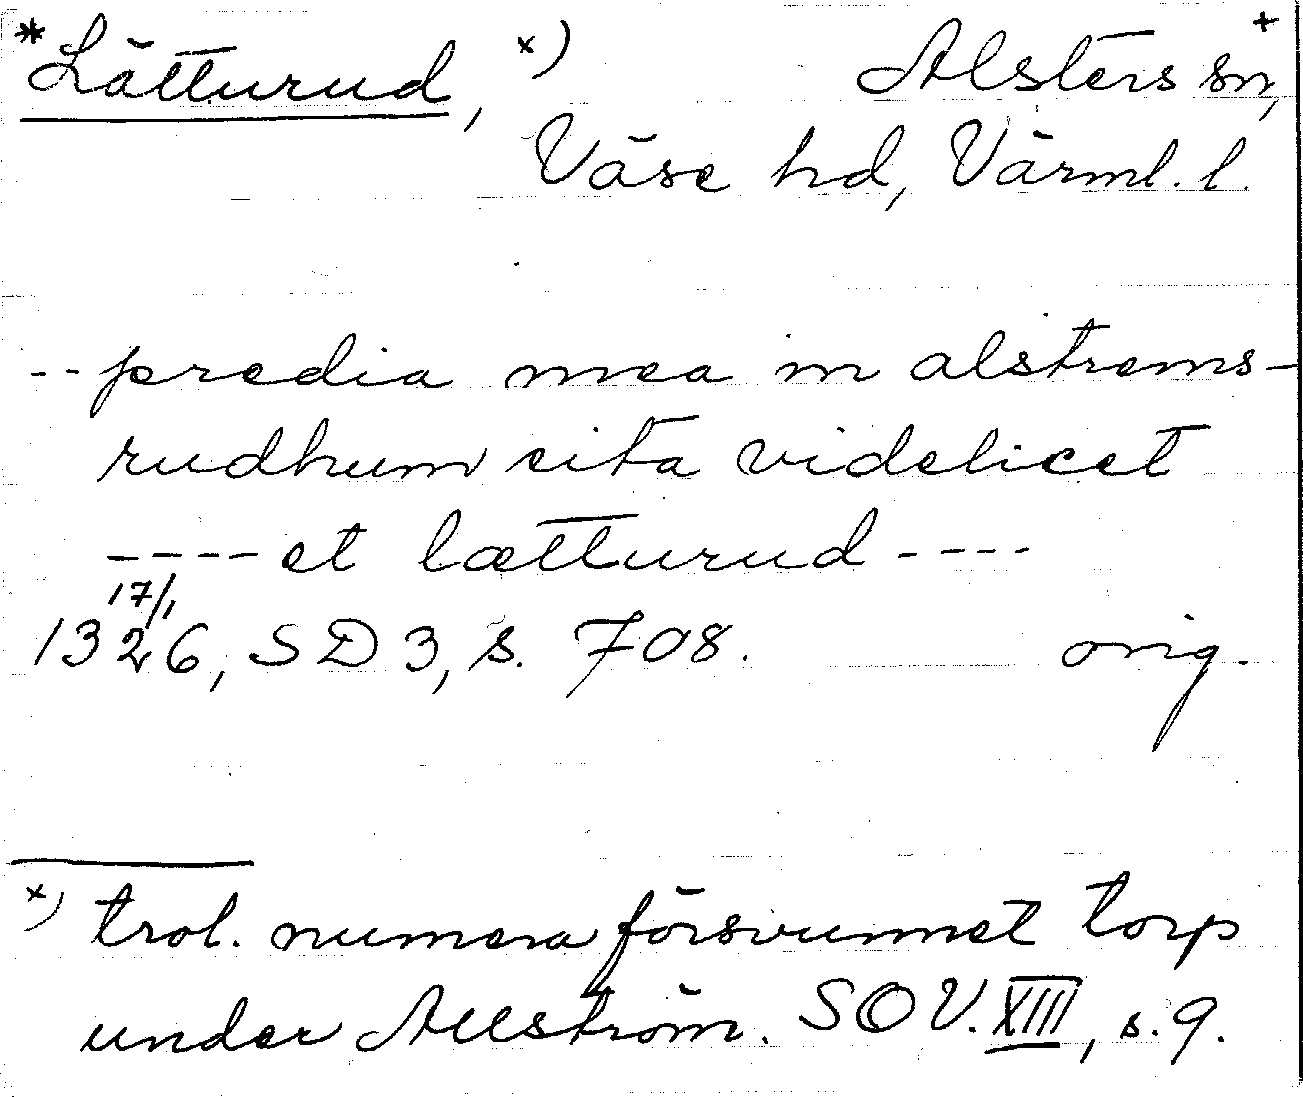 *Lätturud, x) Alsters sn, +
Väse hd, Värml. l.
-- predia mea in alstrems-
rudhum sita videlicet
---- et lætturud ----
17/1
1326, SD 3, s. 708. orig.
x) trol. numera försvunnet torp
under Allström. SOV. XIII, s. 9.